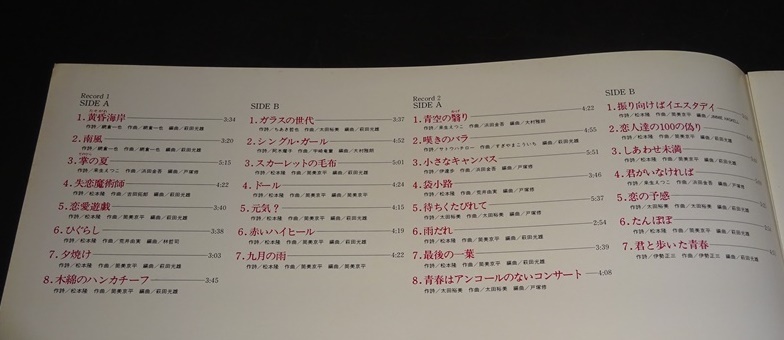 Record 1
SIDE A
たそがれ
1.黄昏海岸 3:34
作詩／網倉一也 作曲／網倉一也 編曲／萩田光雄
2.南風 3:20
作詩／網倉一也 作曲／網倉一也 編曲／萩田光雄
3.掌の夏 5:15
作詩／来生えつこ 作曲／浜田金吾 編曲／戸塚修
4.失恋魔術師 4:22
作詩／松本隆 作曲／吉田拓郎 編曲／萩田光雄
5.恋愛遊戯 3:40
作詩／松本隆 作曲／筒美京平 編曲／萩田光雄
6.ひぐらし 3:38
作詩／松本隆 作曲／荒井由実 編曲／林哲司
7.夕焼け 3:03
作詩／松本隆 作曲／筒美京平 編曲／萩田光雄
8.木綿のハンカチーフ 3:45
作詩／松本隆 作曲／筒美京平 編曲／萩田光雄
SIDE B
1.ガラスの世代 3:37
作詩／ちあき哲也 作曲／太田裕美 編曲／萩田光雄
2.シングル・ガール 4:52
作詩／阿木燿子 作曲／宇崎竜童 編曲／大村雅朗
3.スカーレットの毛布 5:01
作詩／松本隆 作曲／筒美京平 編曲／萩田光雄
4.ドール 4:24
作詩／松本隆 作曲／筒美京平 編曲／筒美京平
5.元気? 4:15
作詩／松本隆 作曲／筒美京平 編曲／萩田光雄
6.赤いハイヒール 4:19
作詩／松本隆 作曲／筒美京平 編曲／萩田光雄
7.九月の雨 4:22
作詩／松本隆 作曲／筒美京平 編曲／筒美京平
Record 2
SIDE A
かげ
1.青空の翳り 4:22
作詩／来生えつこ 作曲／浜田金吾 編曲／大村雅朗
2.嘆きのバラ 4:55
作詩／サトウハチロー 作曲／すぎやまこういち 編曲／萩田光雄
3.小さなキャンバス 5:51
作詩／伊達歩 作曲／浜田金吾 編曲／戸塚修
4.袋小路 3:46
作詩／松本隆 作曲／荒井由実 編曲／萩田光雄
5.待ちくたびれて 3:37
作詩／太田裕美 作曲／太田裕美 編曲／戸塚修
6.雨だれ 2:54
作詩／松本隆 作曲／筒美京平 編曲／萩田光雄
7.最後の一葉 3:39
作詩／松本隆 作曲／筒美京平 編曲／萩田光雄
8.青春はアンコールのないコンサート 4:08
作詩／太田裕美 作曲／太田裕美 編曲／戸塚修
SIDE B
1.振り向けばイエスタデイ
作詩／松本隆 作曲／筒美京平 編曲／
2.恋人達の100の偽り
作詩／松本隆 作曲／筒美京平 編曲／萩田光雄
3.しあわせ未満
作詩／松本隆 作曲／筒美京平 編曲／萩田光雄
4.君がいなければ
作詩／来生えつこ 作曲／浜田金吾 編曲／戸塚修
5.恋の予感
作詩／太田裕美 作曲／太田裕美 編曲／萩田光雄
6.たんぽぽ
作詩／松本隆 作曲／筒美京平 編曲／萩田光雄
7.君と歩いた青春
作詩／伊勢正三 作曲／伊勢正三 編曲／萩田光雄